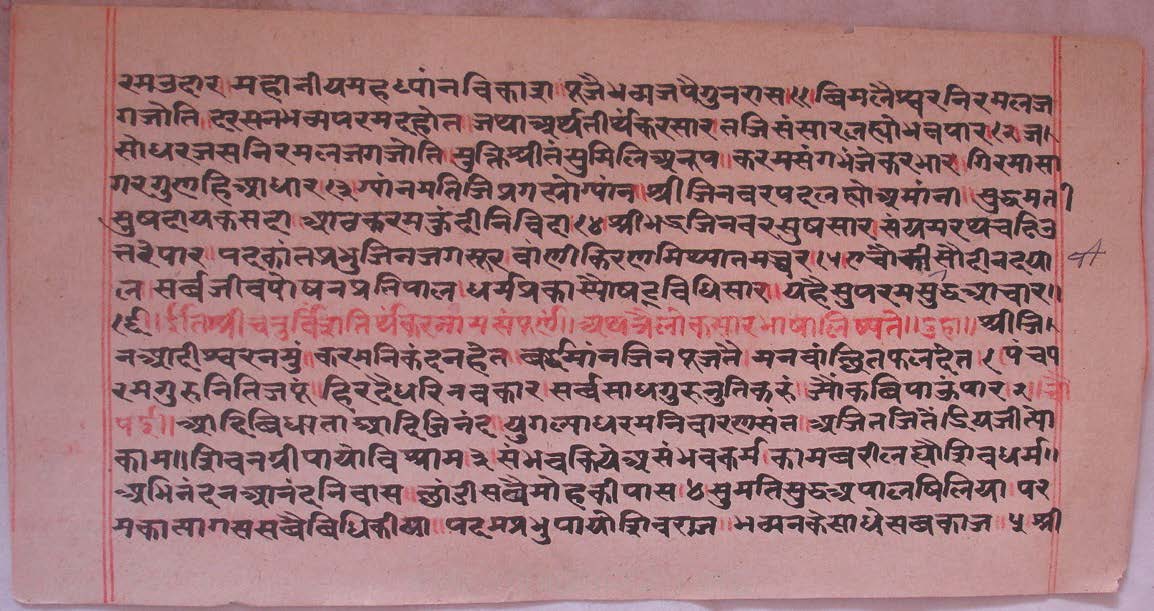 रमउदार॥महाज्ञानीयमहध्यांनविकाश॥पूजैभव्यजपैगुनरास॥१॥विमलैस्वरनिरमलज
गजोति॥दरसनभव्यपरमदहोत॥जथाअर्थतीर्थंकरसार॥तजिसंसारलह्योभवपार॥२॥ज।
सोधरजसनिरमलजगजोति॥मुक्तिश्रीतंसुमिलिअनूप॥करमसंगभंजेकरभार॥गिरमासा
गरगुणहिआधार॥३॥ग्यांनमतिजिप्रगस्योग्यांन॥श्रीजिनवरपदलह्योअमांना॥सुद्धमती
सुषदायकसदा॥आठकरमकुंदीनिविदा॥४॥श्रीभद्रजिनवरसुषसार॥संयमरथचढि
तरेपार॥पदकांतप्रभुजिनजगसूर॥वांणीकिरणमिथ्यातमचूर॥५॥एचौवीसौदीनदया
ल॥सर्वजीवपोषनप्रतिपाल॥धर्मप्रकास्सौषटविधिसार॥यहैसुपरमसुद्धआचार॥
॥६॥इतिश्रीचतुर्विंशतितीर्थंकरनामसंपूर्णं॥अथत्रैलोकसारभाषालिष्यते॥दुहा॥श्रीजि।
नआदीस्वरनमुं॥करमनिकंदनहेत॥वर्द्धमांनजिनपूजतै॥मनवांछितफलदेत॥१॥पंचप
रमगुरुनितिजपूं॥हिरदैधरिनवकार॥सर्वसाधगुरुनुतिकरुं॥ओंकविपाऊंपार॥२॥चौ
पई॥आदिविधाताआदिजिनंद॥युगलाधरमनिवारणसंत॥अजितजितेंद्रियजीत्यो
काम॥शिवनयीपायोविश्राम॥३॥संभवकियेअसंभवकर्म॥कामचरीलह्यौशिवधर्म॥
अभिनंदनआनंदनिवास॥छांडीसवैमोहकीपास॥४॥सुमतिसुद्धअपालषिलिया॥पर
मकासागससवैविधिकीया॥पदमप्रभुपायोशिवराज॥भव्यनकेसाधेसबकाज॥५॥श्री